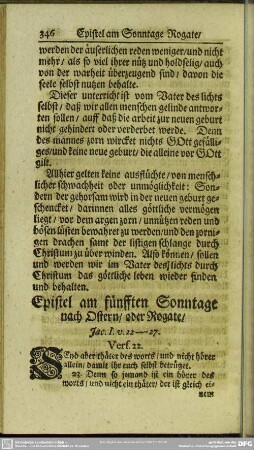 346 Epistel am Sonntage Rogate/
werden der äuserlichen reden weniger/und nicht
mehr/ als so viel ihrer nütz und holdselig/ auch
von der warheit überzeugend sind/ davon die
seele selbst nutzen behalte.
Dieser unterricht ist vom Vater des lichts
selbst/ daß wir allen menschen gelinde antwor-
ten sollen/ auff daß die arbeit zur neuen geburt
nicht gehindert oder verderbet werde. Denn
des mannes zorn wircket nichts GOtt gefälli-
ges/und keine neue geburt/ die alleine vor GOtt
gilt.
Alhier gelten keine ausflüchte/ von mensch-
licher schwachheit oder unmöglichkeit: Son-
dern der gehorsam wird in der neuen geburt ge-
schencket/ darinnen alles göttliche vermögen
liegt/ vor dem argen zorn/ unnützen reden und
bösen lüsten bewahret zu werden/und den zorni-
gen drachen samt der listigen schlange durch
Christum zu überwinden. Also können/ sollen
und werden wir im Vater des lichts durch
Christum das göttliche leben wieder finden
und behalten.
Epistel am fünfften Sonntage
nach Ostern/ oder Rogate/
Jac. I. v. 22-27.
Vers. 22.
SEyd aber thäter des worts/ und nicht hörer
allein/ damit ihr euch selbst betrüget.
23. Denn so jemand ist ein hörer des
worts/ und nicht ein thäter/ der ist gleich ei-
nem